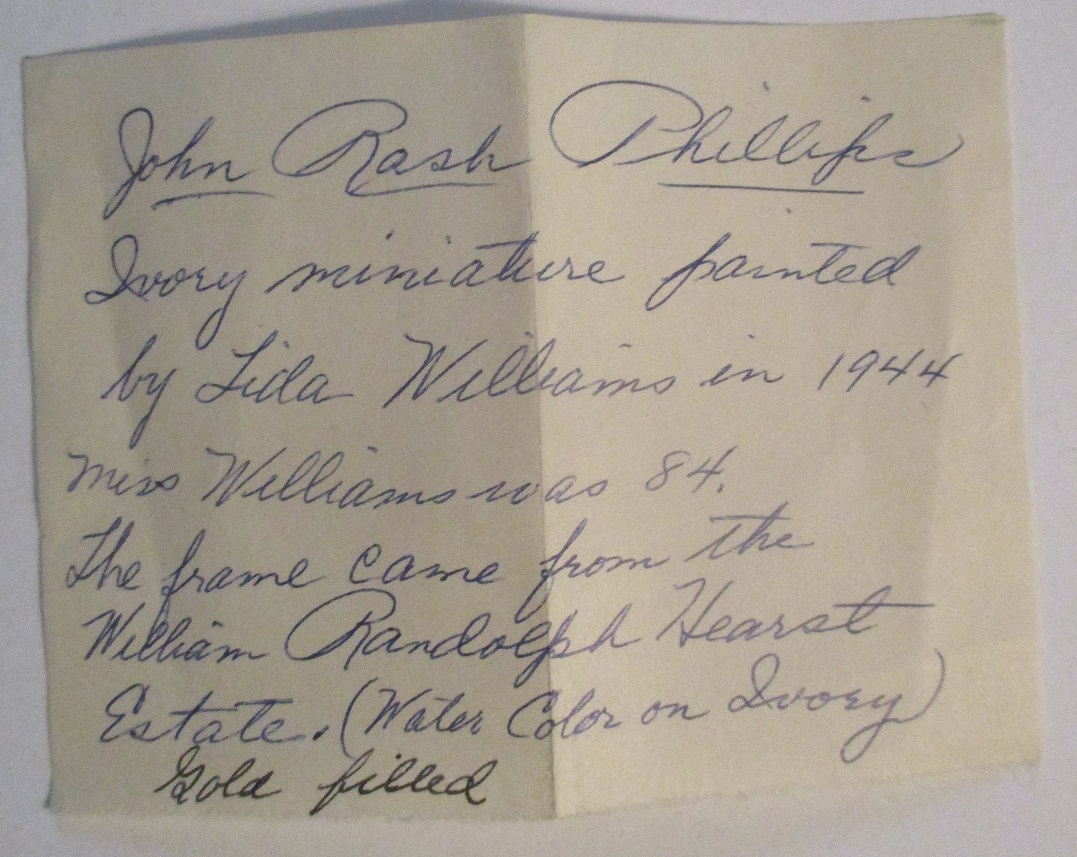 John Rash Phillips
Ivory miniature painted
by Lida Williams in 1944
Miss Williams was 84.
The frame came from the
William Randolph Hearst
Estate. (Water Color on Ivory)
Gold filled